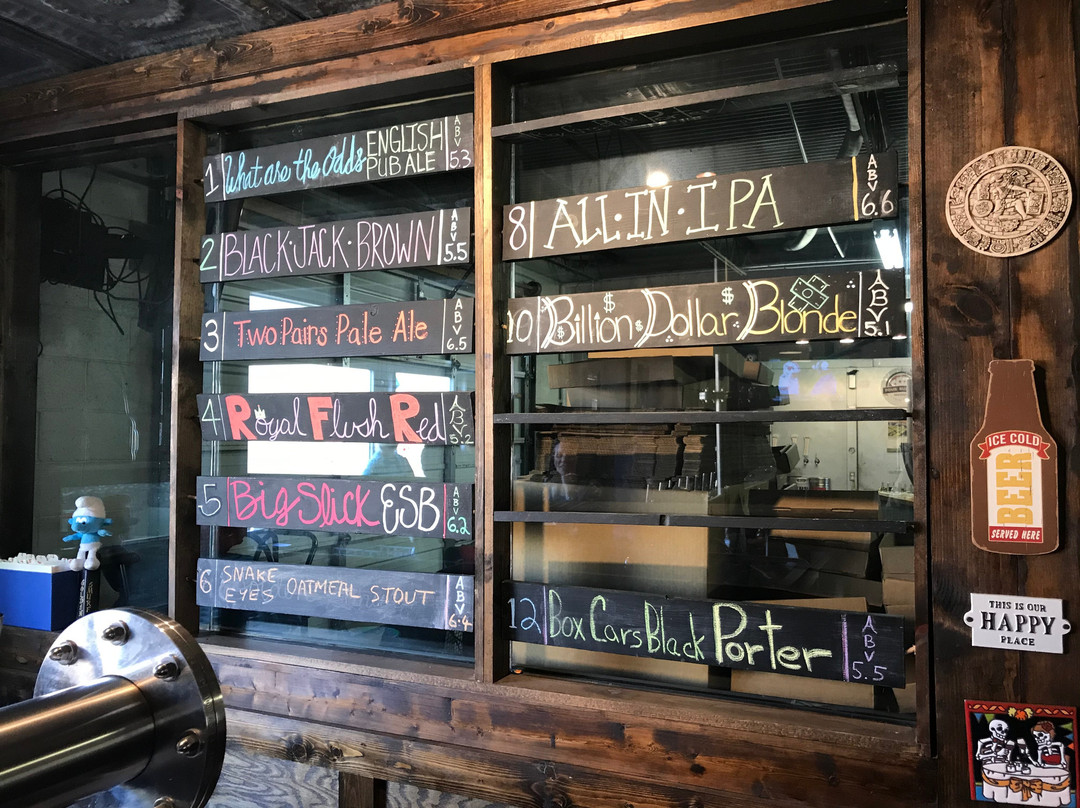 1 What are the Odds ENGLISH PUB ALE ABV 5.3
2 BLACK·JACK·BROWN ABV 5.5
3 Two Pairs Pale Ale ABV 6.5
4 Royal Flush Red ABV 5.2
5 Big Slick ESB ABV 6.2
6 SNAKE EYES OATMEAL STOUT ABV 6.4
8 ALL·IN·IPA ABV 6.6
10 Billion Dollar Blonde ABV 5.1
12 Box Cars Black Porter ABV 5.5
ICE COLD
BEER
SERVED HERE
THIS IS OUR
HAPPY
PLACE